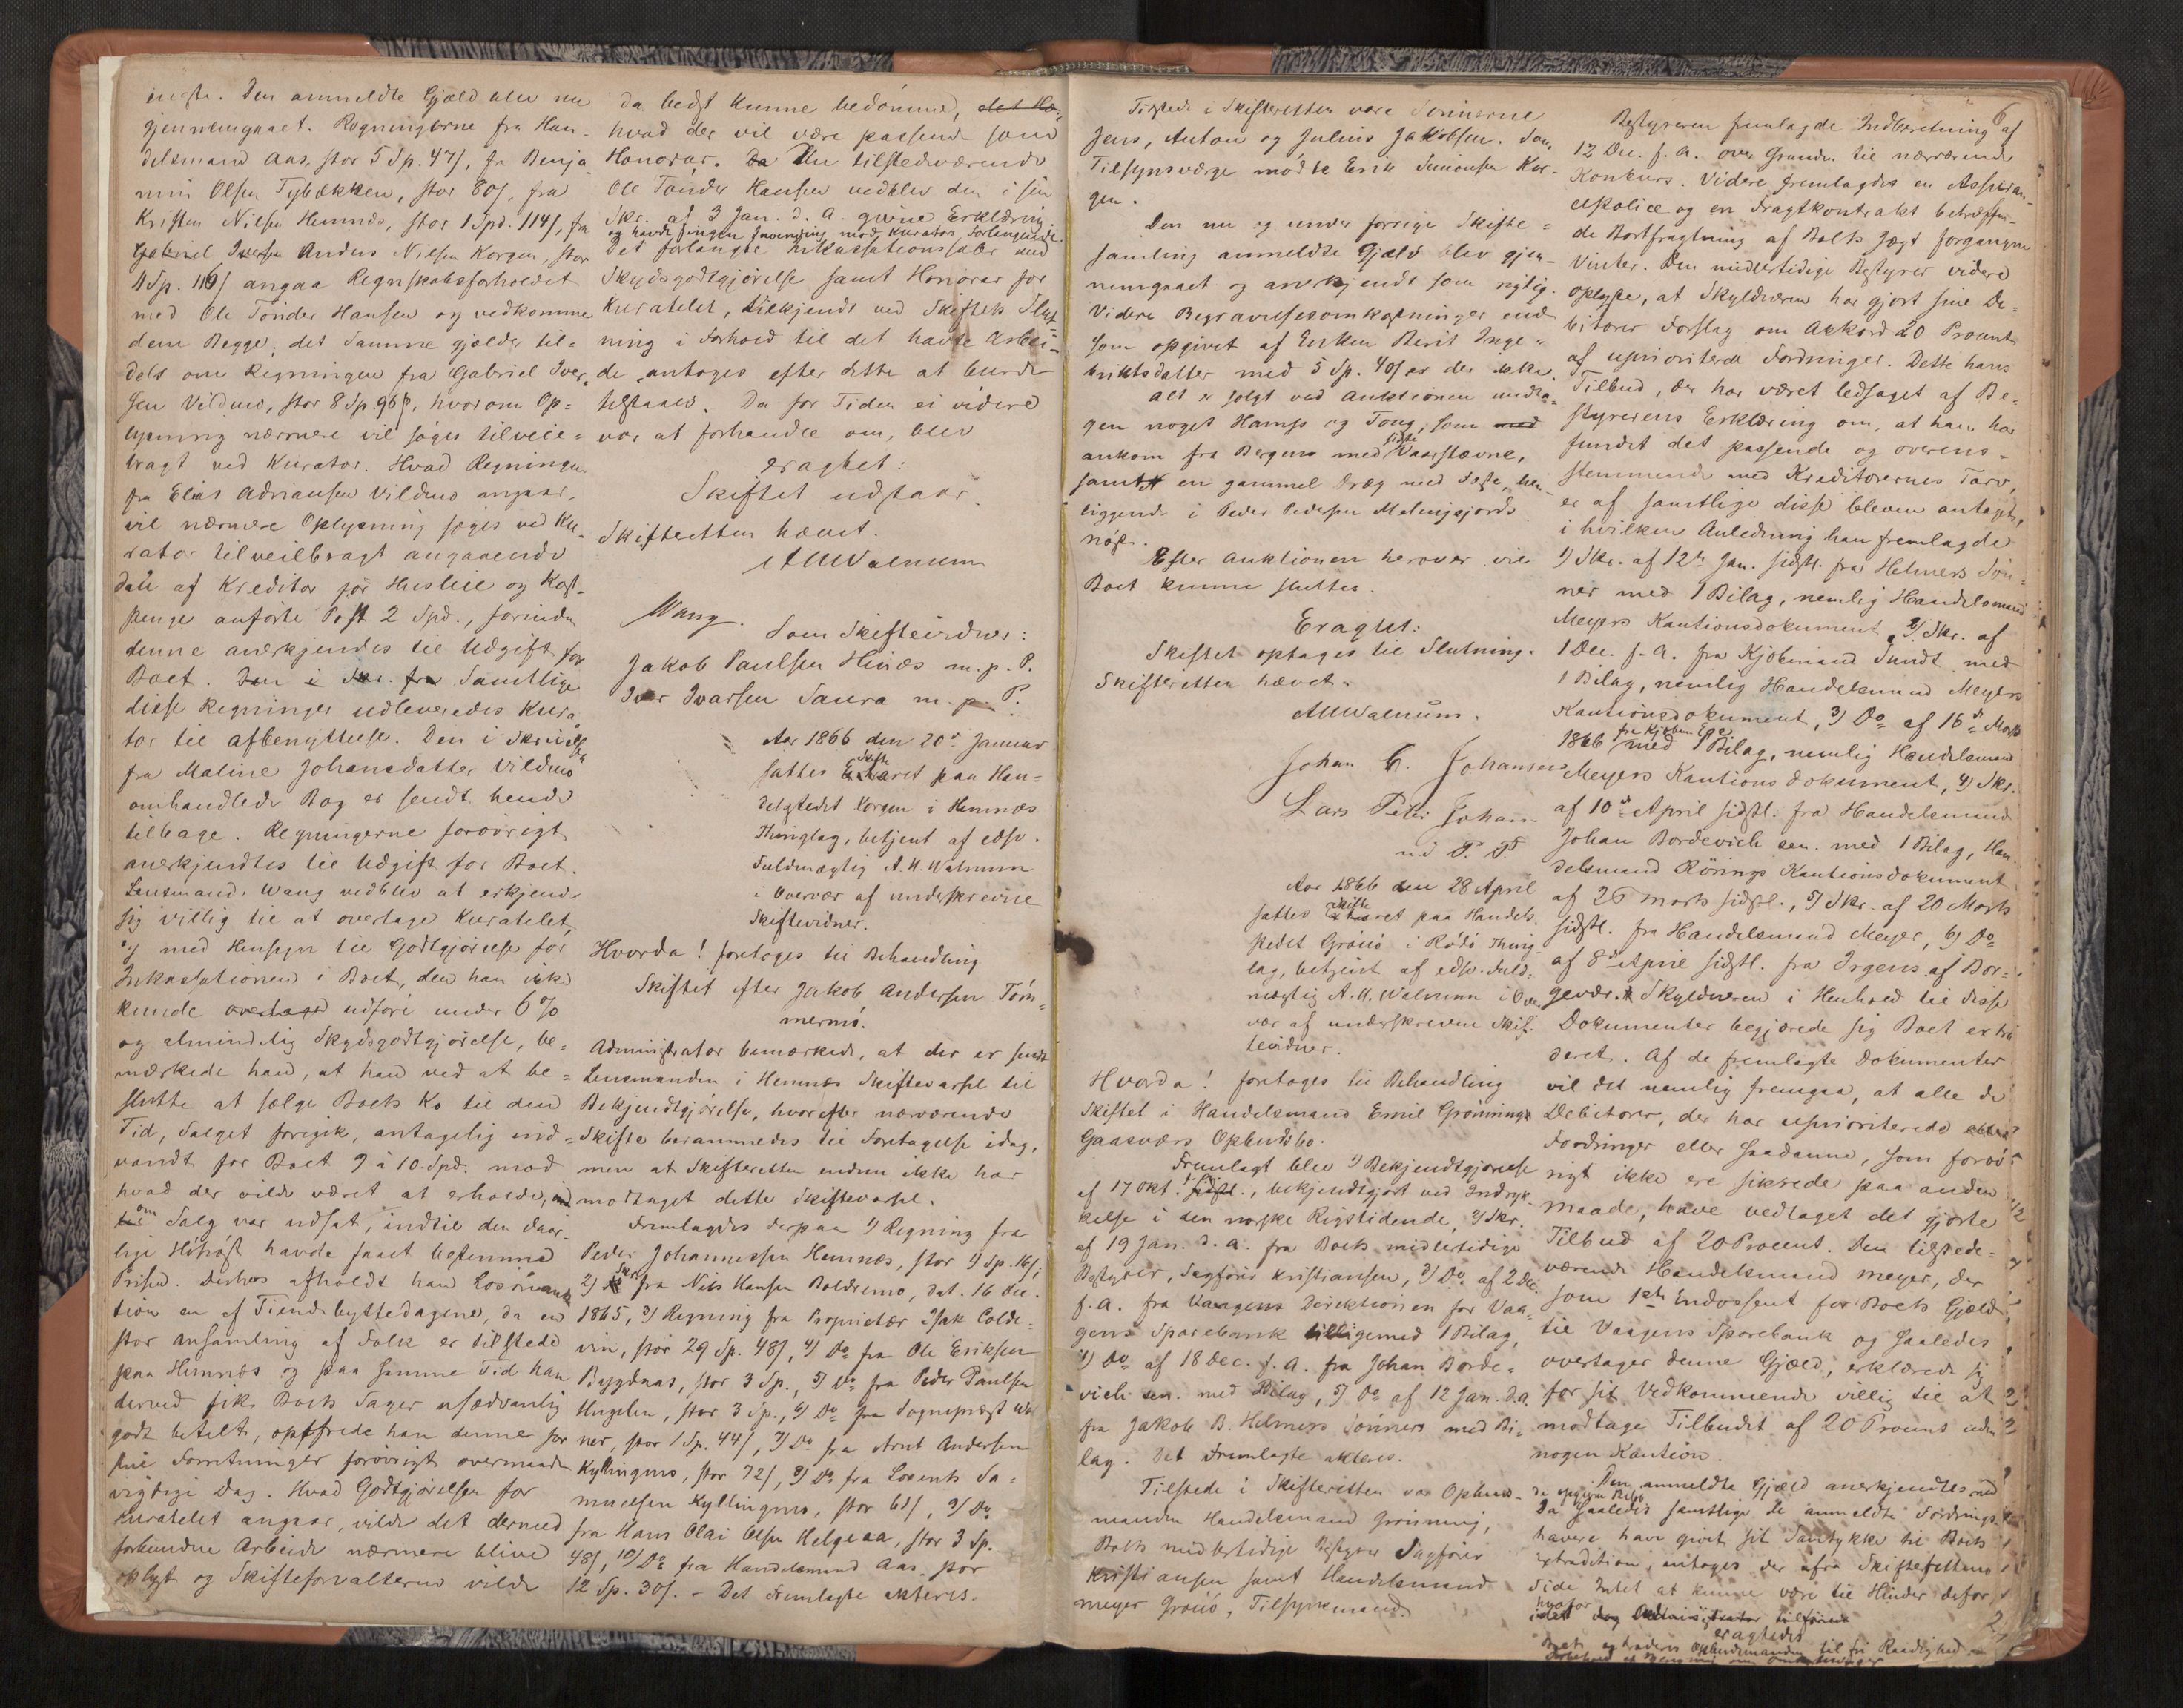 Den anmeldte Gjæld blev nu
gjennemgaaet. Regningerne fra Han-
delsmand Aas, stor 5 Sp. 47/, fra Benja-
min Olsen Tybækken, stor 80/, fra
Kristen Nilsen Hemnæs, stor 1 Spd. 114/, fra
Gabriel Iversen Anders Nilsen Korgen, stor
4 Sp. 116/ angaa Regnskabsforholdet
med Ole Tönder Hansen og vedkomme
dem Begge; det Samme gjælder til-
dels om Regningen fra Gabriel Iver-
sen Vildmo, stor 8 Sp. 96/, hvorom Op-
lysning nærmere vil söges tilveie-
bragt ved Kurator. Hvad Regningen
fra Elias Adriansen Vildmo angaar,
vil nærmere Oplysning söges ved Ku-
rator tilveiebragt angaaende
den af Kreditor for Husleie og Kost-
penge anförte Post 2 Spd., forinden
denne anerkjendes til Udgift for
Boet. Den i Skr. fra Samtlige
disse Regninger udleveredes Kura-
tor til afbenyttelse. Den i Skrivelse
fra Maline Johansdatter Vildmo
omhandlede Bog er sendt hende
tilbage. Regningerne forövrigt
anerkjendtes til Udgift for Boet.
Lensmand Wang vedblev at erkjende
sig villig til at overtage Kuratelet,
og med Hensyn til Godtgjörelse for
Inkassationen i Boet, den han ikke
kunde overtage udföre under 6 %
og almindelig Skydsgodtgjörelse, be-
mærkede han, at han ved at be-
slutte at sælge Boets Ko til den
Tid, Salget foregik, antagelig ind-
vandt for Boet 9 à 10 Spd. mod
hvad der vilde været at erholde,
om Salg var udsat, indtil den daar-
lige Höhöst havde faaet bestemme
Prisen. Derhos afholdt han Lösöreauk-
tion en af Tiendebyttedagene, da en
stor Ansamling af Folk er tilstede
paa Hemnæs og paa samme Tid han
derved fik Boets Sager usædvanlig
godt betalt, opofrede han denne for
sine Forretninger forövrigt overmaade
vigtige Dag. Hvad Godtgjörelsen for
Kuratelet angaar, vilde det dermed
forbundne Arbeide nærmere blive
oplyst og Skifteforvalteren vilde
da bedst kunne bedömme,
hvad der vil være passende som
Honorar. Da Den tilstedeværende
Ole Tönder Hansen vedblev den i sin
Skr. af 3 Jan. d. A. givne Erklæring
og havde Ingen Indvending mod Kurators Forlangende.
Det forlangte Inkassationssalær med
Skydsgodtgjörelse samt Honorar for
Kuratelet, tilkjendt ved Skiftets Slut-
ning i Forhold til det havte Arbei-
de, antoges efter dette at burde
tilstaaes. Da for Tiden ei videre
var at forhandle om, blev
eragtet:
Skiftet udstaar.
Skifteretten hævet.
A U Walnum
Wang.
Som Skiftevidner:
Jakob Paulsen Hinæs m. p. P.
Iver Ivarsen Saura m. p. P.
Aar 1866 den 20de Januar
sattes Skifteretten paa Han-
delsstedet Korgen i Hemnæs
Thinglag, betjent af edsv.
Fuldmægtig A. U. Walnum
i Overvær af underskrevne
Skiftevidner.
Hvorda! foretoges til Behandling
Skiftet efter Jakob Andersen Töm-
mermo.
Administrator bemærkede, at der er sendt
Lensmanden i Hemnæs Skiftevarsel til
Bekjendtgjörelse, hvorefter nærværende
Skifte berammedes til Foretagelse idag,
men at Skifteretten endnu ikke har
modtaget dette Skiftevarsel.
Fremlagdes derpaa 1) Regning fra
Peder Johannesen Hemnæs, stor 1) Sp. 16/;
2) Skr. fra Nils Hansen Boldremo, dat. 16 Dec.
1865, 3) Regning fra Proprietær Isak Colde-
vin, stor 29 Sp. 48/, 4) Do fra Ole Eriksen
Bygdnæs, stor 3 Sp., 5) Do fra Peder Paulsen
Ungelen, stor 3 Sp., 6) Do fra Sogneprest
ner, stor 1 Sp. 44/, 7) Do fra Arnt Andersen
Kyllingmo, stor 72/, 8) Do fra Lorents Sa-
muelsen Kyllingmo, stor 68/, 9) Do
fra Hans Olai Olsen Helgeaa, stor 3 Sp.
48/, 10) Do fra Handelsmand Aas, stor
12 Sp. 30/. - Det Fremlagte akteres.
Tilstede i Skifteretten vare Sönnerne
Jens, Anton og Julius Jakobsen. Som
Tilsynsværge mödte Erik Simonsen Kor-
gen.
Den nu og under forrige Skifte-
samling anmeldte Gjæld blev gjen-
nemgaaet og anerkjendt som rigtig.
Videre Begravelsesomkostninger end
som opgivet af Enken Berit Inge-
briktsdatter med 5 Sp. 40/ er der ikke.
Alt er solgt ved Auktionen undta-
gen noget Hamp og Toug, som
ankom fra Bergen med sidste Vaarstævne,
samt en gammel Dræg med Læste, hen-
liggende i Peder Pedersen Malmgjords
nöst.
Efter Auktionen herover vil
Boet kunne sluttes.
Eragtet:
Skiftet optages til Slutning.
Skifteretten hævet.
A U Walnum.
Johan C. Johansen
Lars Peter Johan-
m. P. P.
Aar 1866 den 28 April
sattes Skifteretten paa Handels-
stedet Grönö i Rödö Thing-
lag, betjent af edsv. Fuld-
mægtig A. U. Walnum i Over-
vær af underskrevne Skif-
tevidner.
Hvorda! foretoges til Behandling
Skiftet i Handelsmand Emil Grönnings
Gaasværs Opbudsbo.
Fremlagt blev 1) Bekjendtgjörelse
af 17 Okt. f. A., bekjendtgjort ved Indryk-
kelse i den norske Rigstidende, 2) Skr.
af 19 Jan. d. A. fra Boets midlertidige
Bestyrer, Sagförer Kristiansen, 3) Do af 2 Dec.
f. A. fra Vaagens Direktionen for Vaa-
gens Sparebank tilligemed 1 Bilag,
4) Do af 18 Dec. f. A. fra Johan Borde-
vich sen. med Bilag, 5) Do af 12 Jan. d.A.
fra Jakob B. Helmers Sönner med Bi-
lag. Det Fremlagte akteres.
Tilstede i Skifteretten var Opbuds-
manden Handelsmand Grönning,
Boets midlertidige Bestyrer Sagförer
Kristiansen samt Handelsmand
Meyer Grönö, Tilsynsmand.
6
Bestyreren fremlagde Indberetning af
12 Dec. f. A. over Grunden til nærværende
Konkurs. Videre fremlagdes en Assuran-
cepolice og en Fragtkontrakt betræffen-
de Bortfragtning af Boets Jægt forgangne
Vinter. Den midlertidige Bestyrer videre
oplyste, at Skyldneren har gjort sine De-
bitorer Forslag om Akkord 20 Procent
af uprioriterede Fordringer. Dette hans
Tilbud, der har været ledsaget af Be-
styrerens Erklæring om, at han har
fundet det passende og overens-
stemmende med Kreditorernes Tarv,
er af samtlige disse bleven antaget,
i hvilken Anledning han fremlagde
1) Skr. af 12te Jan. sidstl. fra Helmers Sön-
ner med 1 Bilag, nemlig Handelsmand
Meyers Kautionsdokument, 2) Skr. af
1 Dec. f. A. fra Kjöbmand Sundt med
1 Bilag, nemlig Handelsmand Meyers
Kautionsdokument, 3) Do af 16de Marts
1866 med 1 Bilag, nemlig Handelsmand
Meyers Kautionsdokument, 4) Skr.
af 10de April sidstl. fra Handelsmand
Johan Bordevich sen. med 1 Bilag, Han-
delsmand Rörings Kautionsdokument
af 26 Marts sidstl., 5) Skr. af 20 Marts
sidstl. fra Handelsmand Meyer, 6) Do
af 8de April sidstl. fra Irgens af Bor-
gevær. Skyldneren i Henhold til disse
Dokumenter begjærede sig Boet extra-
deret. Af de fremlagte Dokumenter
vil det nemlig fremgaa, at alle de
Debitorer, der har uprioriterede
Fordringer eller saadanne, som forov-
rigt ikke ere sikrede paa anden
Maade, have vedtaget det gjorte
Tilbud af 20 Procent. Den tilstede-
værende Handelsmand Meyer, der
som 1ste Endossent for Boets Gjæld
til Vaagens Sparebank og saaledes
overtager denne Gjæld, erklærede sig
for sit Vedkommende villig til at
modtage Tilbudet af 20 Procent uden
nogen Kaution.
Den anmeldte Gjæld anerkjendtes med
de opgivne Belöb.
Da saaledes samtlige de anmeldte Fordrings-
havere have givet sit Samtykke til Boets
Extradition, antoges der fra Skifterettens
Side Intet at kunne være til Hinder derfor,
hvorfor
eragtedes
Boet extraderes Opbudsmanden til fri Raadighed